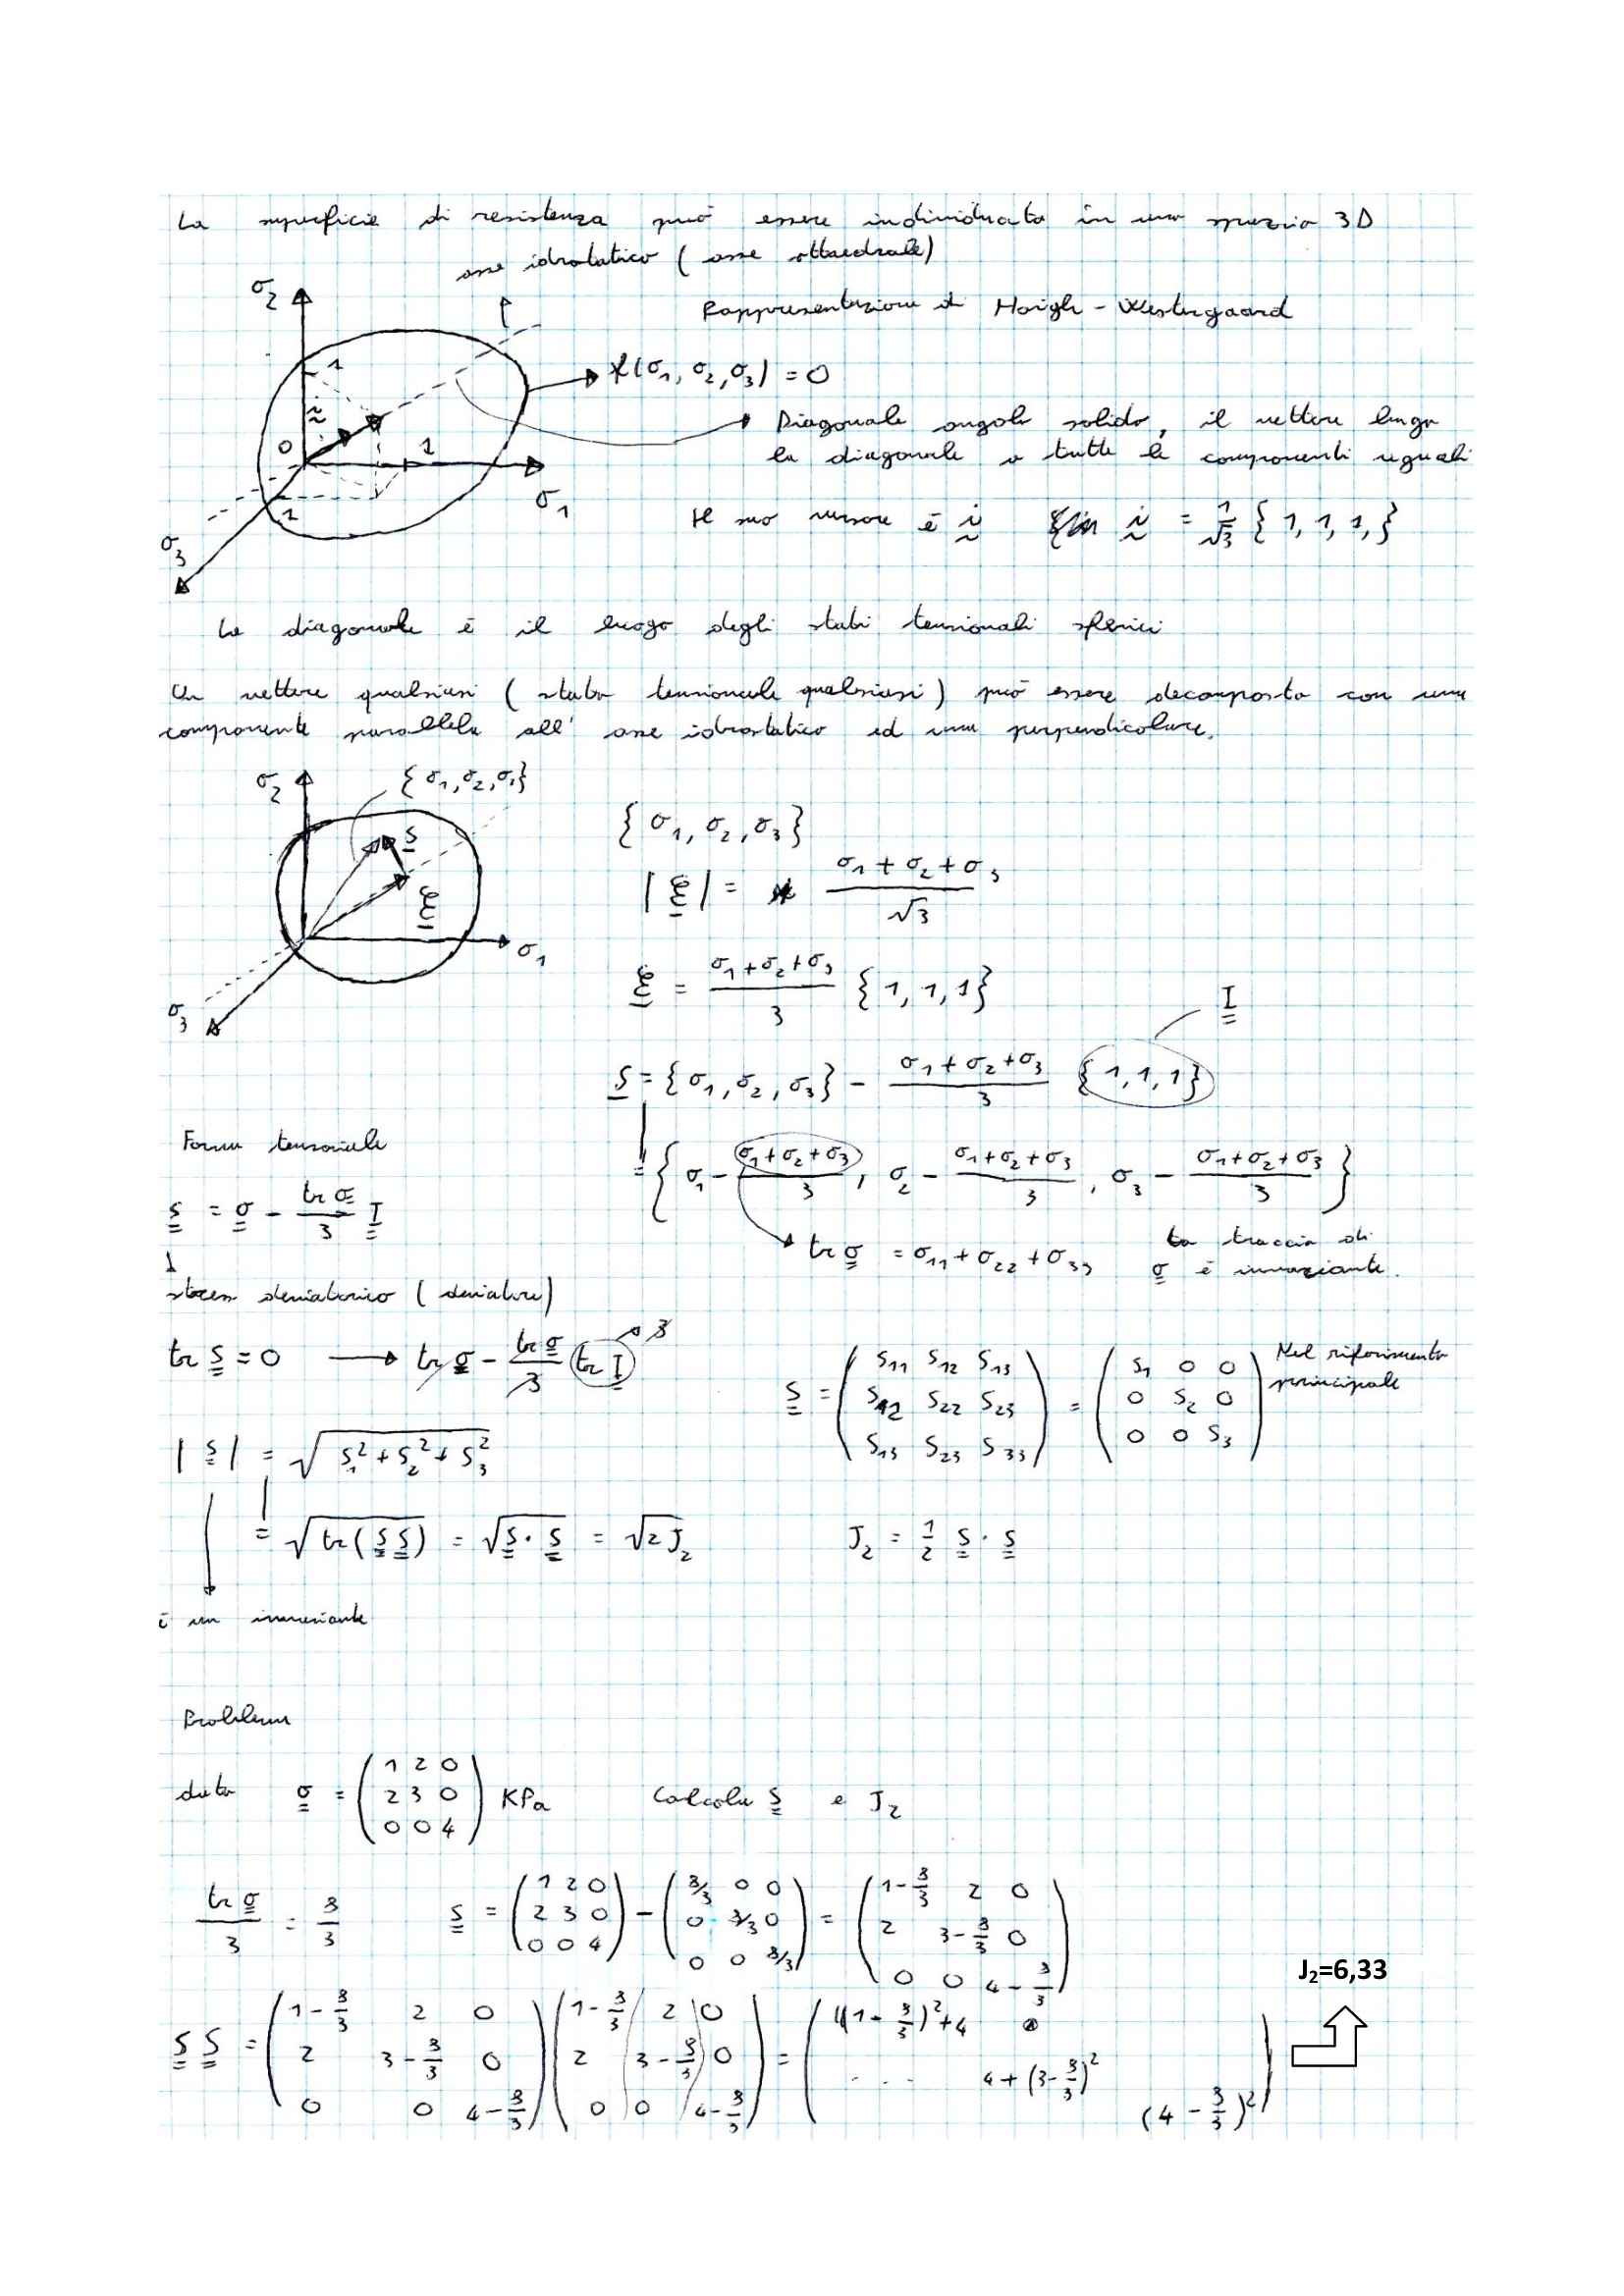 La superficie di resistenza può essere individuata in uno spazio 3D
asse idrostatico (asse ottaedrale)
Rappresentazione di Haigh-Westergaard
σ2
1
f(σ1, σ2, σ3) = 0
i
0
1
σ1
1
σ3
Diagonale angolo solido, il vettore lungo
la diagonale a tutte le componenti uguali
Il suo versore è i i = 1/√3 {1, 1, 1,}
La diagonale è il luogo degli stati tensionali sferici
Un vettore qualsiasi (stato tensionale qualsiasi) può essere decomposto con una
componente parallela all' asse idrostatico ed una perpendicolare.
σ2
{σ1, σ2, σ3}
S
ξ
σ1
σ3
{σ1, σ2, σ3}
|ξ| = (σ1 + σ2 + σ3)/√3
ξ = (σ1 + σ2 + σ3)/3 {1, 1, 1}
I
S = {σ1, σ2, σ3} - (σ1 + σ2 + σ3)/3 {1, 1, 1}
= {σ1 - (σ1 + σ2 + σ3)/3, σ2 - (σ1 + σ2 + σ3)/3, σ3 - (σ1 + σ2 + σ3)/3}
Forma tensoriale
S = σ - tr σ/3 I
tr σ = σ11 + σ22 + σ33
La traccia di
σ è invariante.
stress deviatorico (deviatore)
tr S = 0 → tr σ - tr σ/3 tr I → 3
S = (S11 S12 S13
S12 S22 S23
S13 S23 S33) = (S1 0 0
0 S2 0
0 0 S3)
Nel riferimento
principale
|S| = √(S1² + S2² + S3²)
= √(tr(S S)) = √(S · S) = √(2 J2)
J2 = 1/2 S · S
è un invariante
Problema
dato σ = (1 2 0
2 3 0
0 0 4) KPa
Calcola S e J2
tr σ/3 = 8/3
S = (1 2 0
2 3 0
0 0 4) - (8/3 0 0
0 8/3 0
0 0 8/3) = (1-8/3 2 0
2 3-8/3 0
0 0 4-8/3)
S S = (1-8/3 2 0
2 3-8/3 0
0 0 4-8/3) (1-8/3 2 0
2 3-8/3 0
0 0 4-8/3) = ((1-8/3)²+4
... 4+(3-8/3)²
(4-8/3)²)
J2=6,33